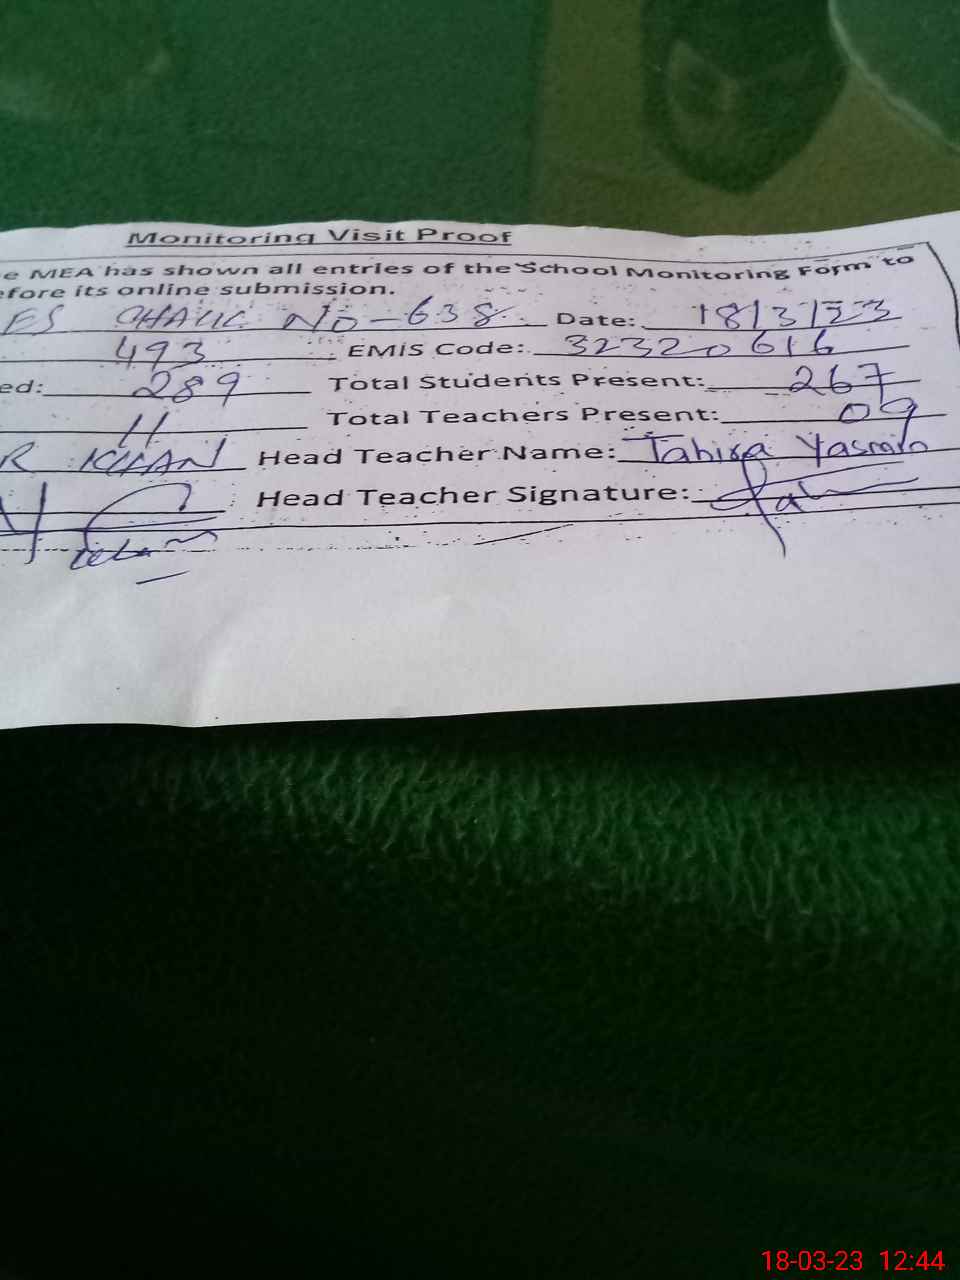 Monitoring Visit Proof
e MEA has shown all entries of the School Monitoring Form to
efore its online submission.
ES CHAKK No-638 Date: 18/3/23
493 EMIS Code: 32320616
ed: 289 Total Students Present: 267
11 Total Teachers Present: 09
R KHAN Head Teacher Name: Tahira Yasmin
Head Teacher Signature:
18-03-23 12:44